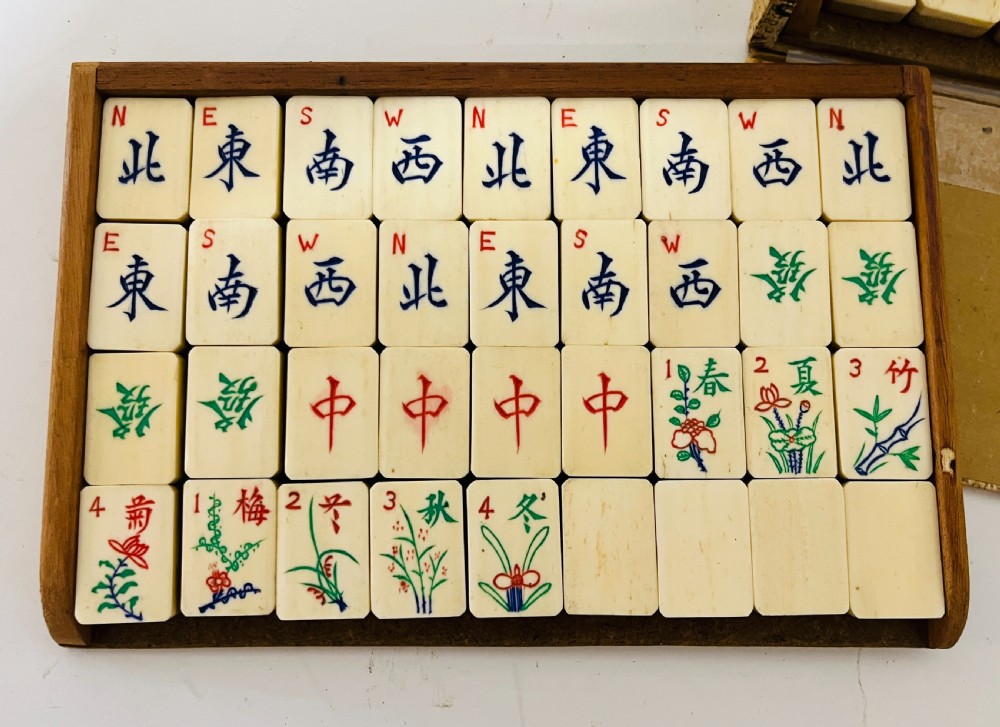 N 北 E 東 S 南 W 西 N 北 E 東 S 南 W 西 N 北
E 東 S 南 W 西 N 北 E 東 S 南 W 西 發 發
發 發 中 中 中 中 1 春 2 夏 3 竹
4 菊 1 梅 2 3 秋 4 冬